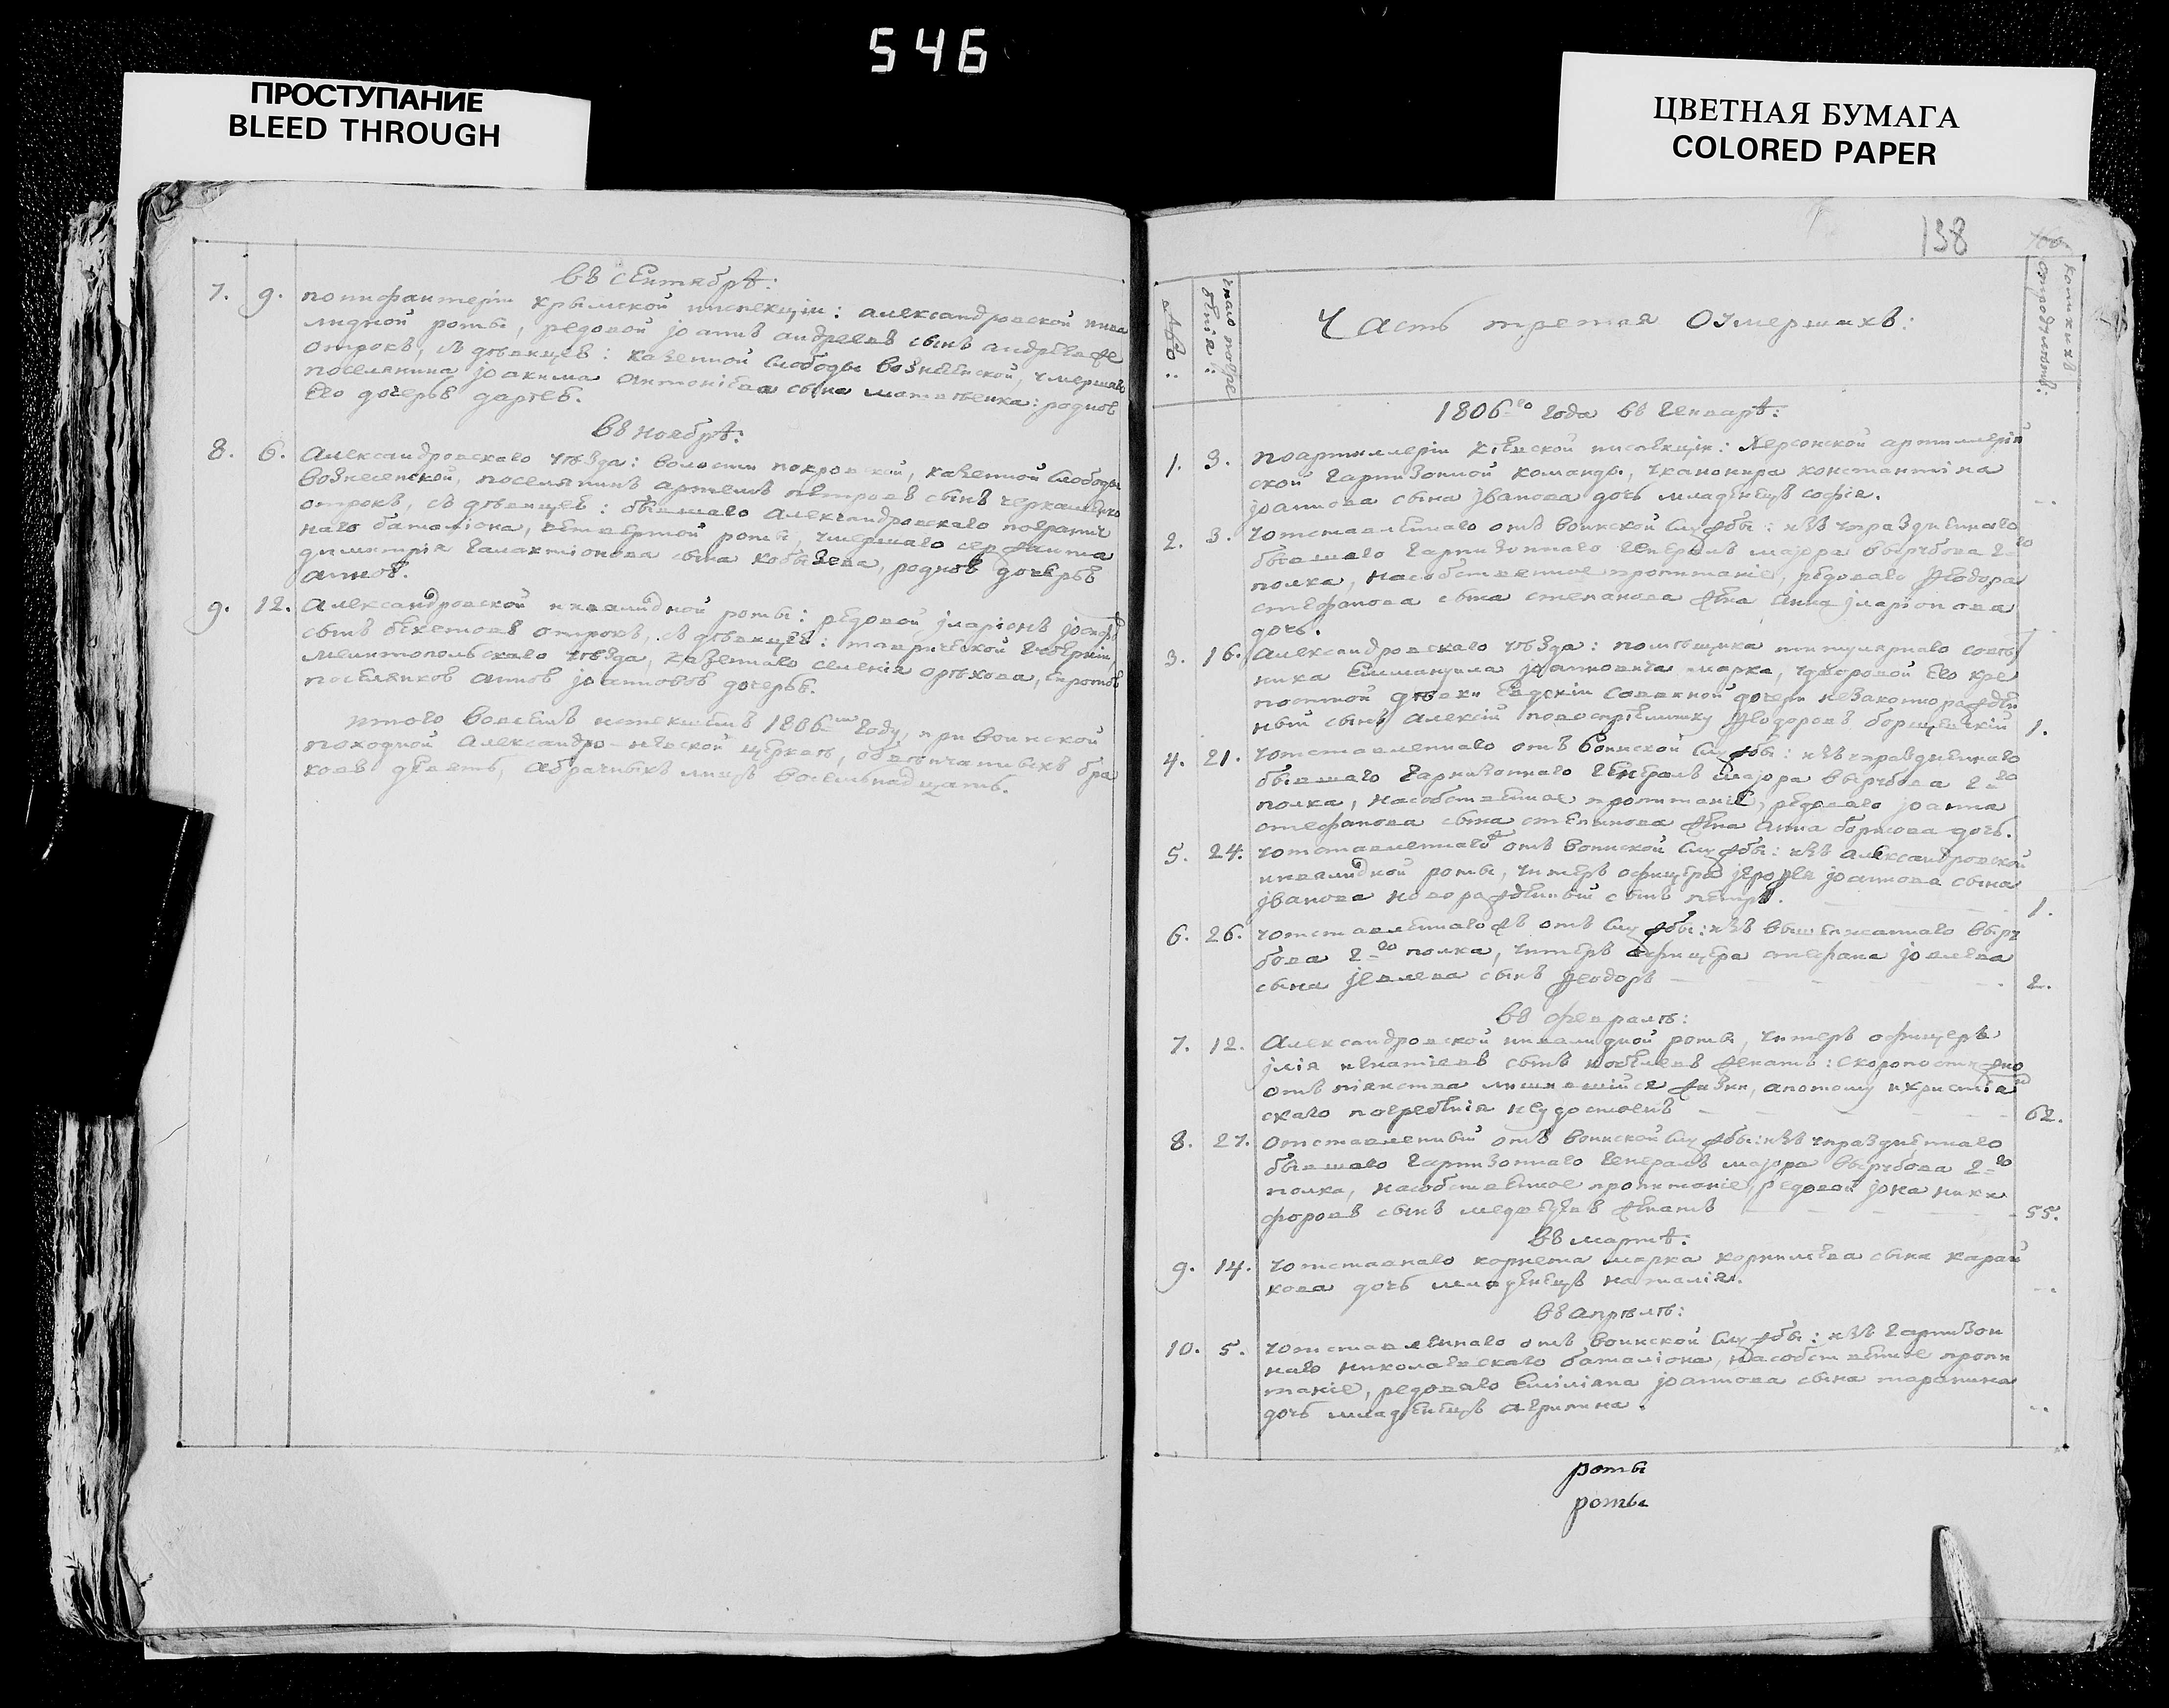 546
ПРОСТУПАНИЕ
BLEED THROUGH
ЦВЕТНАЯ БУМАГА
COLORED PAPER
въ сентябрѣ:
7. 9. поинфантеріи крымской инспекціи: александровской инва
лидной роты, редовой іоаннъ андреевъ сынъ
отрокъ, съ дѣвицею: казенной слободы вознесенской, умершаго
поселянина іоакима антоніева сына матвѣенка: родною
его дочерью даріею.
въ ноябрѣ:
8. 6. Александровскаго уѣзда: волости покровской, казенной слободы
вознесенской, поселянинъ артемъ петровъ сынъ
отрокъ, съ дѣвицею: бывшаго Александровскаго погранич
наго баталіона, четвертой роты, умершаго сержанта
димитрія галактіонова сына кобызева, родною дочерью
анною.
9. 12. Александровской инвалидной роты: редовой иларіонъ
сынъ бекетовъ отрокъ, съ дѣвицею: таврической губерніи,
мелитопольскаго уѣзда, казеннаго селенія орѣхова,
анною іоанновою дочерью.
итого вовсемъ истекшемъ 1806мъ году, при воинской
походной Александро-невской церквѣ, обвѣнчанныхъ бра
ковъ девять, абрачныхъ лицъ восемьнадцать.
138
число погре
бенія:
коликихъ
отродулѣтъ:
Часть третея Оумершихъ:
1806го года въ Генварѣ:
1. 3. поартиллеріи кіевской инспекціи: Херсонской артиллерій
ской гарнизонной команды, уканонира константіна
іоаннова сына іванова дочь младенецъ софія.
2. 3. уотставленнаго отъ воинской службы: изъ упраздненнаго
бывшаго гарнизоннаго генералъ маіора вырубова 2го
полка, насобственное пропитаніе, редоваго феодора
стефанова сына степанова жена анна іларіонова
дочь.
3. 16. Александровскаго уѣзда: помѣщика титулярнаго совѣт
ника еммануила іоанновича марка, удворовой его крѣ
постной дѣвки евдокіи саввиной дочери незаконнорожден
ный сынъ алексій повоспріемнику феодоровъ 1.
4. 21. уотставленнаго отъ воинской службы: изъ упраздненнаго
бывшаго гарнизоннаго генералъ маіора вырубова 2го
полка, насобственное пропитаніе, редоваго іоанна
стефанова сына степанова жена анна борисова дочь.
5. 24. уотставленнаго отъ воинской службы: изъ александровской
инвалидной роты, унтеръ офицера іерофея іоаннова сына
іванова новорожденный сынъ петръ. 1.
6. 26. уотставленнагожъ отъ службы: изъ вышеписаннаго выру
бова 2го полка, унтеръ офицера стефана іовлева
сына іевлева сынъ феодоръ 2.
въ февралѣ:
7. 12. Александровской инвалидной роты, унтеръ офицеръ
ілія игнатіевъ сынъ женатъ: скоропостижно
отъ піянства лишившійся жизни, апотому ихристіан
скаго погребенія неудостоенъ 62.
8. 27. Отставленный отъ воинской службы: изъ упраздненнаго
бывшаго гарнизоннаго генералъ маіора вырубова 2го
полка, насобственное пропитаніе, редовой іона ники
форовъ сынъ медведевъ женатъ 55.
въ мартѣ.
9. 14. уотставнаго корнета марка корниліева сына карай
кова дочь младенецъ наталія.
въ апрѣлѣ:
10. 5. уотставленнаго отъ воинской службы: изъ гарнизон
наго николаевскаго баталіона, насобственное пропи
таніе, редоваго емиліана іоаннова сына таранина
дочь младенецъ агрипина.
роты
роты